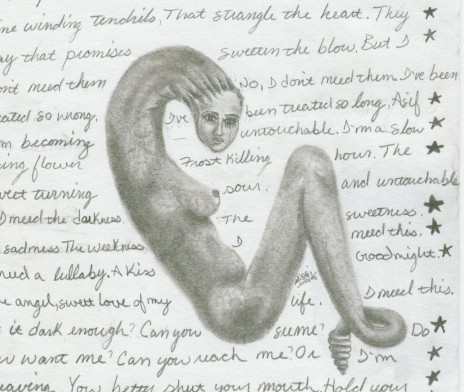 ne winding tendrils, That strangle the heart. They
ay that promises sweeten the blow. But I
on't need them No, I don't need them. I've been
eated so wrong, I've been treated so long, As if
m becoming untouchable. I'm a slow
ing flower Frost Killing hour. The
weet turning sour. and untouchable
I need the darkness. The sweetness.
sadness The weakness I need this.
need a lullaby. A Kiss Goodnight.
e angel, sweet love of my life. I need this.
it dark enough? Can you see me? Do
u want me? Can you reach me? Or I'm
eaving. You better shut your mouth. Hold your